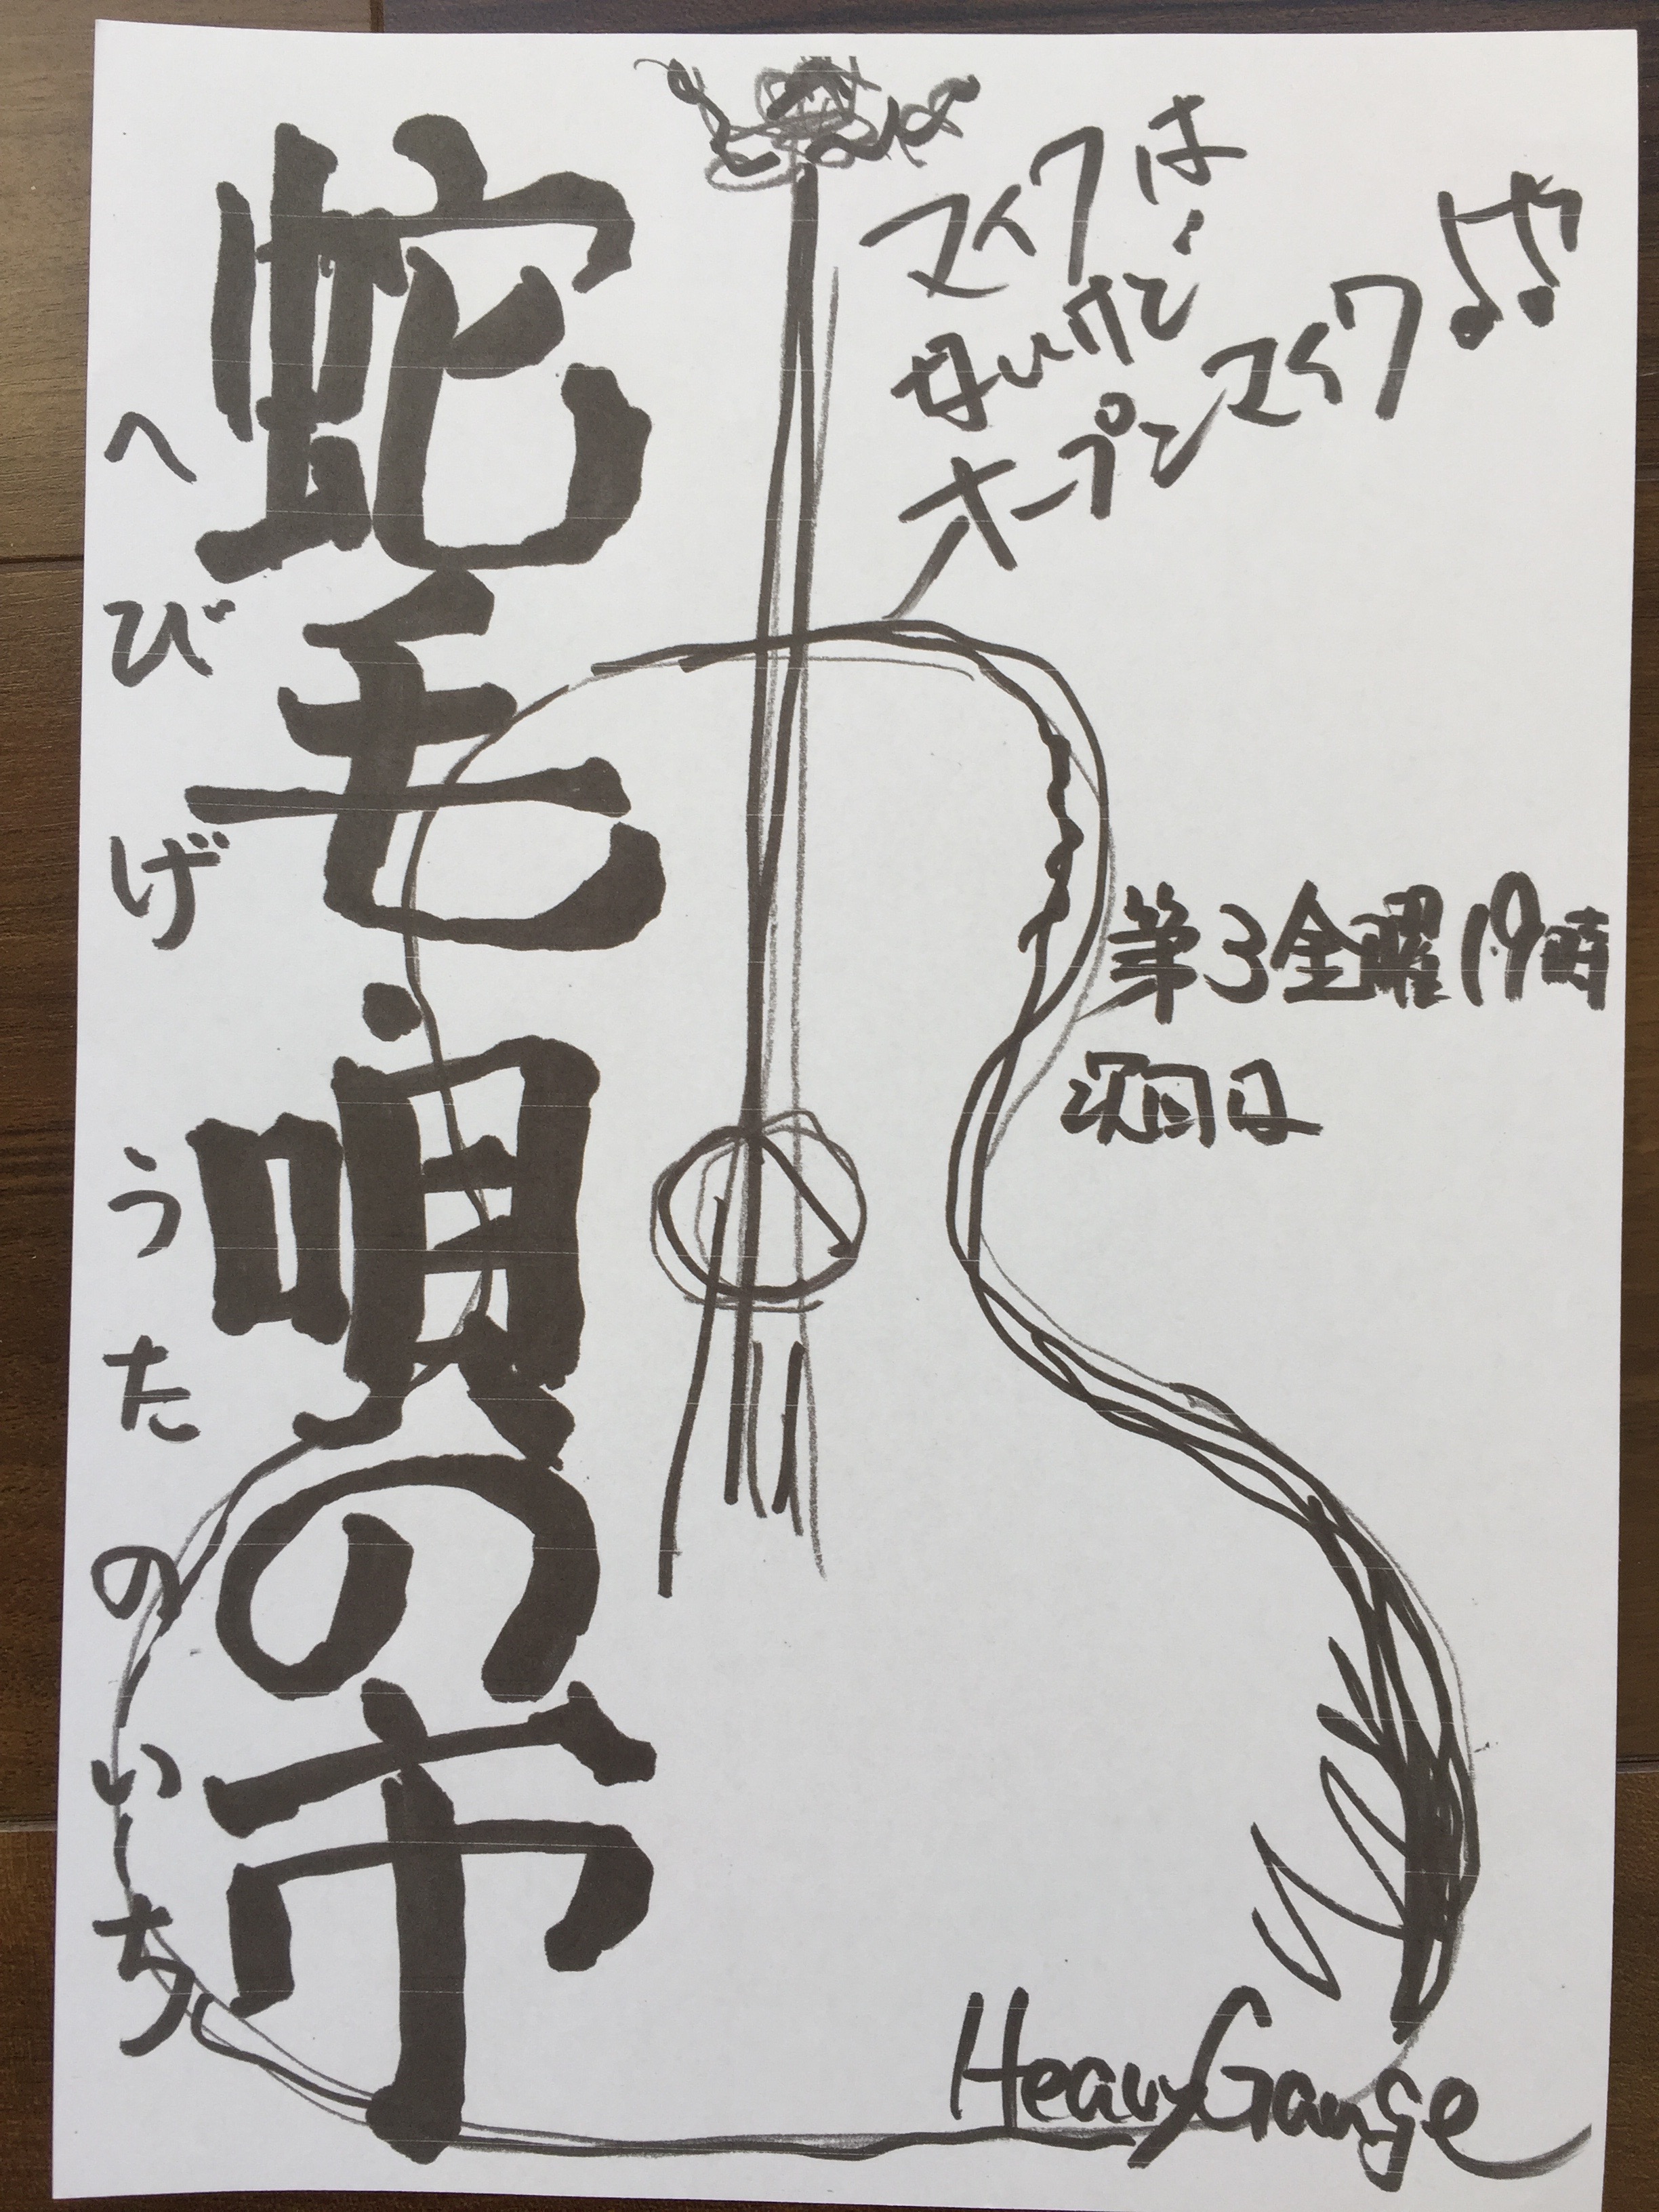 蛇毛・唄の市
へびげ うたのいち
マイクは、
無いけど
オープンマイク
第3金曜19時
次回は
HeavyGauge